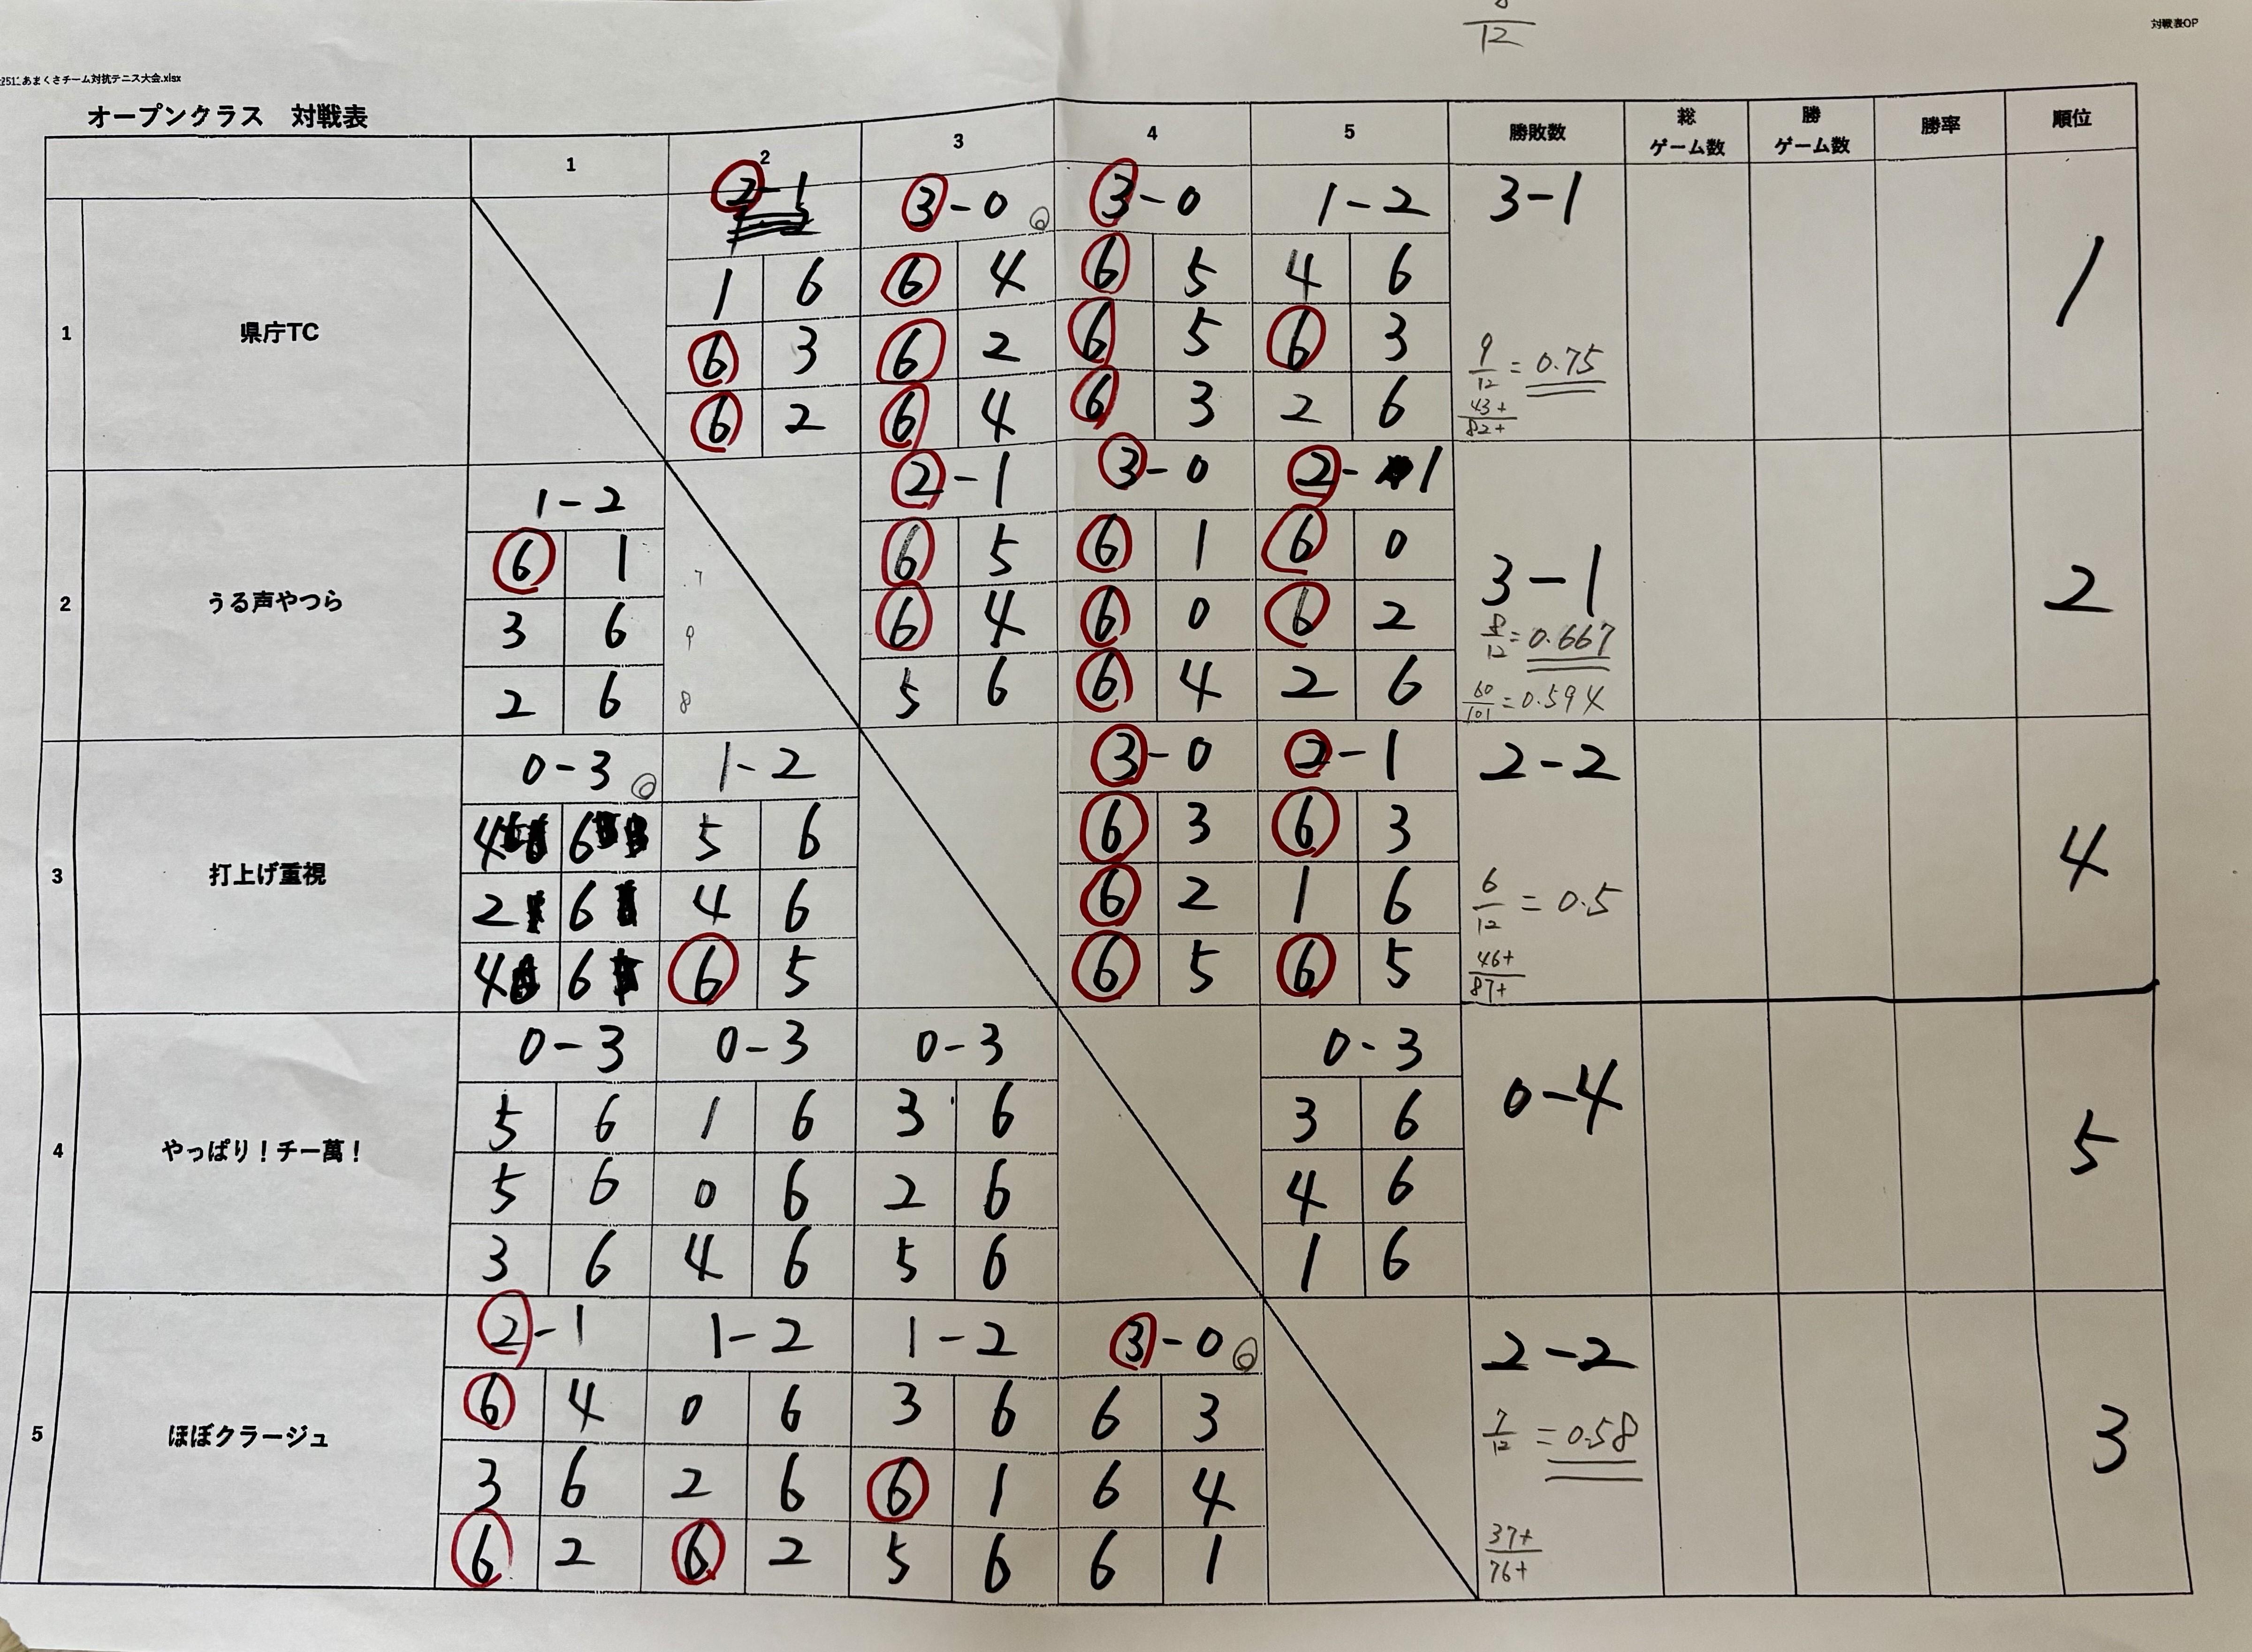 12
対戦表OP
2511あまくさチーム対抗テニス大会.xlsx
オープンクラス 対戦表
1 2 3 4 5 勝敗数 総ゲーム数 勝ゲーム数 勝率 順位
1 県庁TC
2-1 3-0 3-0 1-2 3-1
1 6 6 4 6 5 4 6
6 3 6 2 6 5 6 3
6 2 6 4 6 3 2 6
9/12 = 0.75
43+/82+
1
2 うる声やつら
1-2 2-1 3-0 2-1 3-1
6 1 6 5 6 1 6 0
3 6 6 4 6 0 6 2
2 6 5 6 6 4 2 6
7
9
8
8/12 = 0.667
60/101 = 0.594
2
3 打上げ重視
0-3 1-2 3-0 2-1 2-2
4 6 5 6 6 3 6 3
2 6 4 6 6 2 1 6
4 6 6 5 6 5 6 5
6/12 = 0.5
46+/87+
4
4 やっぱり！チー萬！
0-3 0-3 0-3 0-3 0-4
5 6 1 6 3 6 3 6
5 6 0 6 2 6 4 6
3 6 4 6 5 6 1 6
5
5 ほぼクラージュ
2-1 1-2 1-2 3-0 2-2
6 4 0 6 3 6 6 3
3 6 2 6 6 1 6 4
6 2 6 2 5 6 6 1
7/12 = 0.58
37+/76+
3